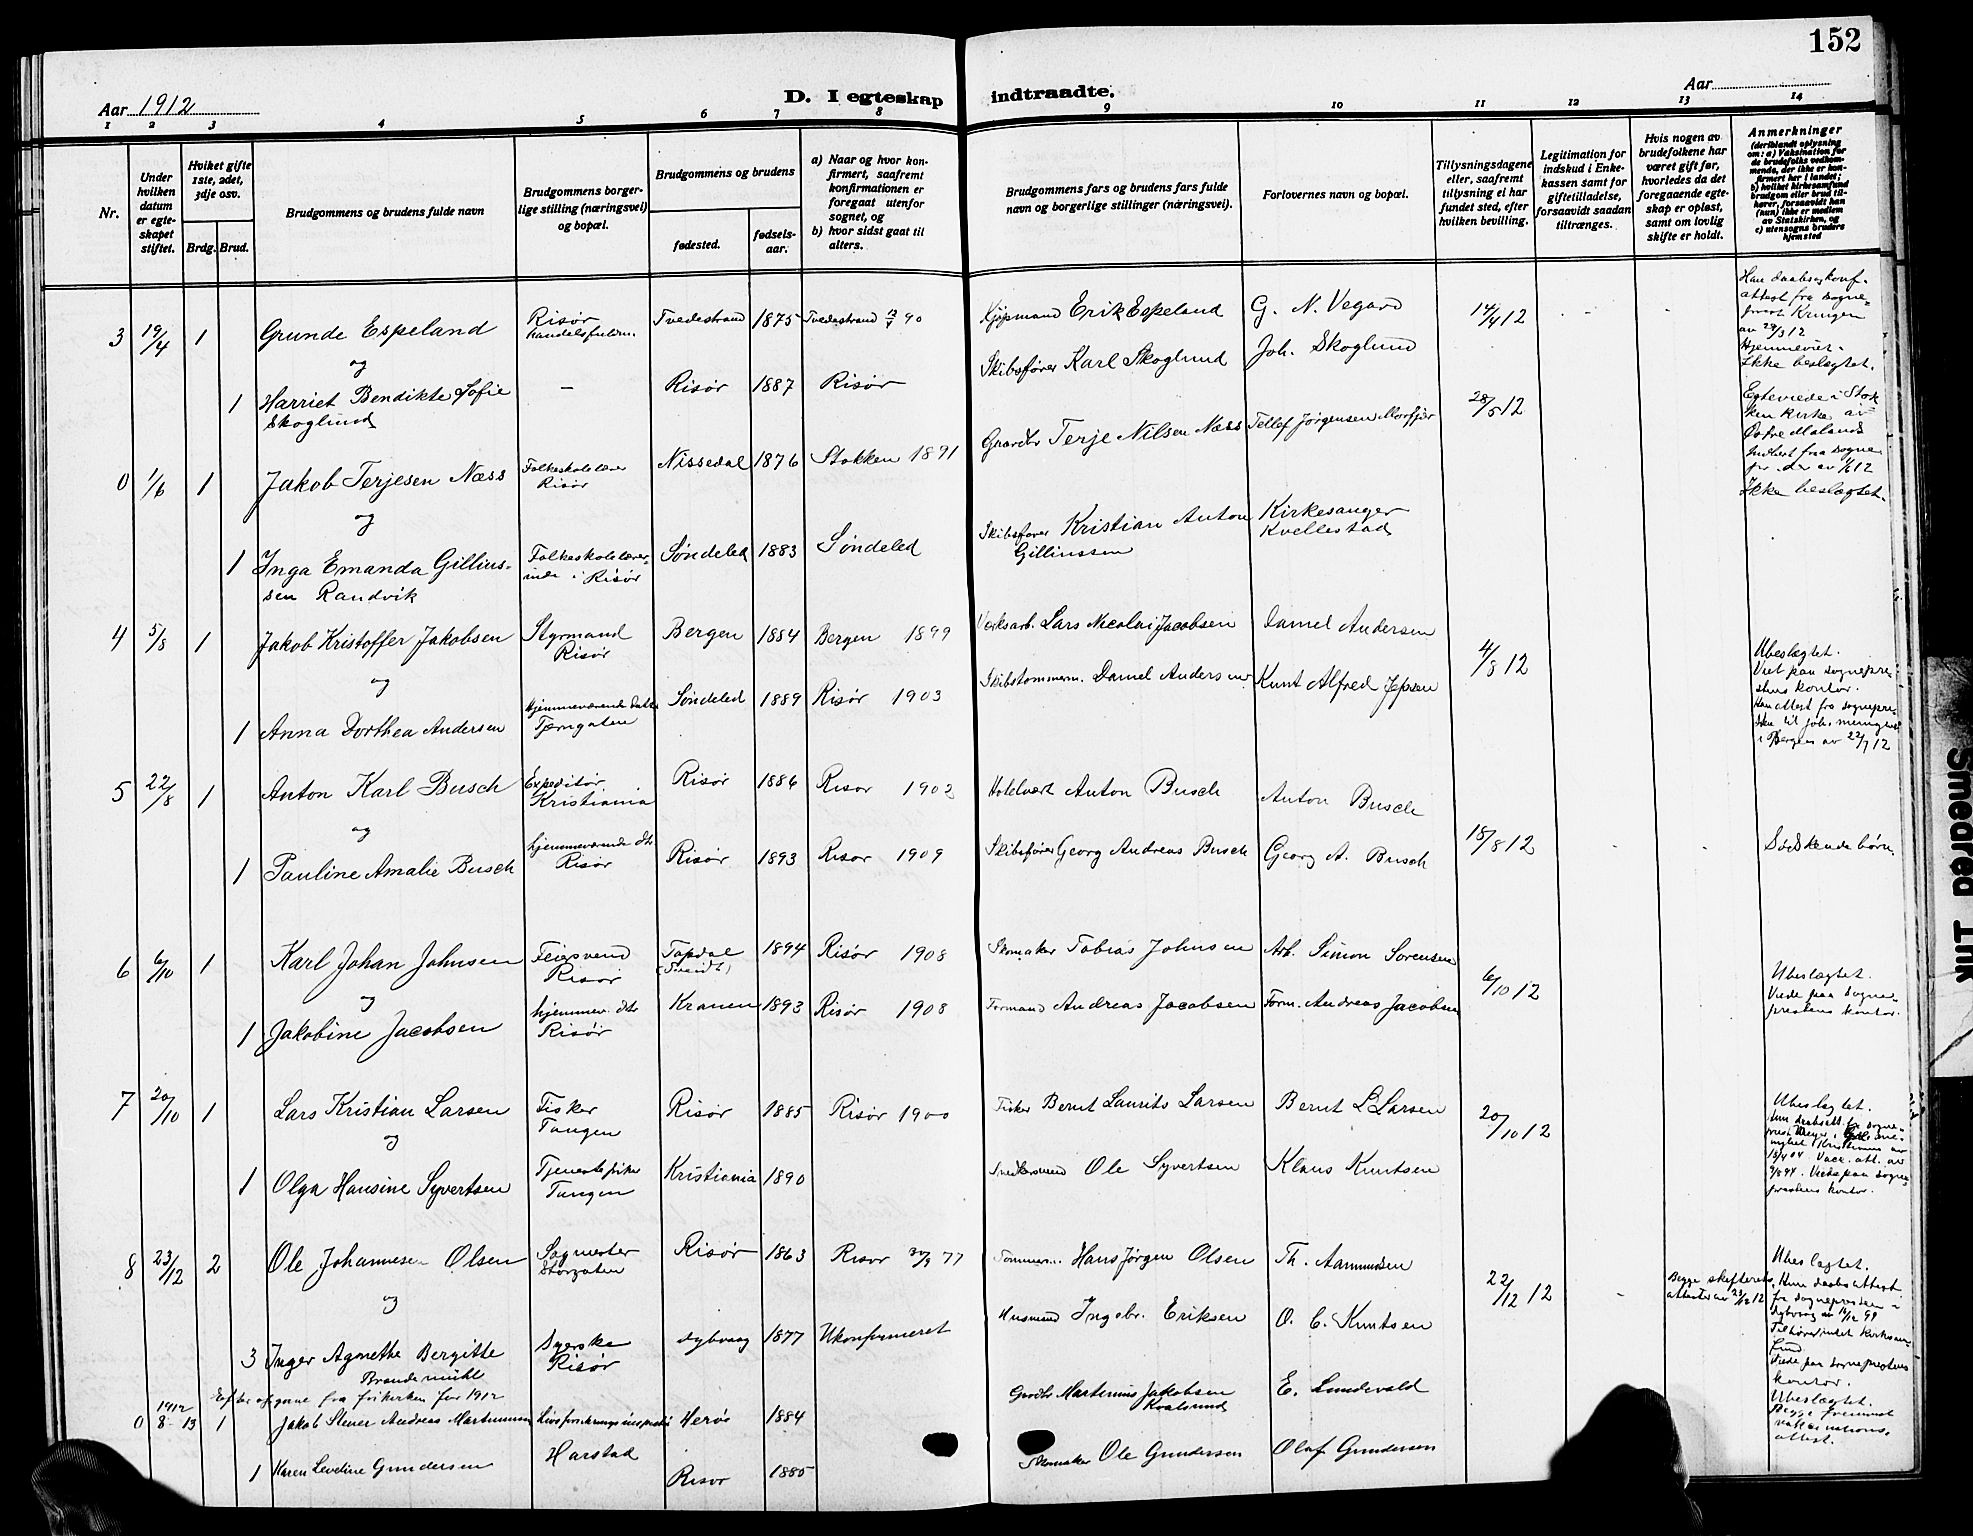 152
Aar 1912
D. I egteskap indtraadte.
Aar
1 2 3 4 5 6 7 8 9 10 11 12 13 14
Nr.
Under hvilken datum er egteskapet stiftet.
Hvilket gifte 1ste, 2det, 3dje osv.
Brdg. Brud.
Brudgommens og brudens fulde navn
Brudgommens borgerlige stilling (næringsvei) og bopæl.
Brudgommens og brudens
fødested.
fødselsaar.
a) Naar og hvor konfirmert, saafremt konfirmationen er foregaat utenfor sognet, og
b) hvor sidst gaat til alters.
Brudgommens fars og brudens fars fulde navn og borgerlige stillinger (næringsvei).
Forlovernes navn og bopæl.
Tillysningsdagene eller, saafremt tillysning ei har fundet sted, efter hvilken bevilling.
Legitimation for indskud i Enkekassen samt for giftetilladelse, forsaavidt saadan tiltrænges.
Hvis nogen av brudefolkene har været gift før, hvorledes da det foregaaende egteskap er opløst, samt om lovlig skifte er holdt.
Anmerkninger (deriblandt oplysning om: a) Vaksination for de brudefolks vedkommende, der ikke er konfirmert her i landet; b) hvilket kirkesamfund brudgom eller brud tilhører, forsaavidt han (hun) ikke er medlem av Statskirken, og c) utensogns bruders hjemsted
3 19/4 1 Grunde Espeland Risør Handelsfuldm. Tvedestrand 1875 Tvedestrand 90 Kjøpmand Erik Espeland G. N. Vegard 14/4 12
og
1 Harriet Bendikte Sofie Skoglund - Risør 1887 Risør Skibsfører Karl Skoglund Joh. Skoglund
Ikke beslegtet.
0 1/6 1 Jakob Terjesen Næss Folkeskolelærer Risør Nissedal 1876 Stokken 1891 Gaardbr Terje Nilsen Næss Tellef Jørgensen Morfjær 28/5 12
Egteviede i Stokken kirke
Ikke beslegtet.
og
1 Inga Emanda Gilliussen Randvik Folkeskolelærerinde i Risør Søndeled 1883 Søndeled Skibsfører Kristian Anton Gilliussen Kirkesanger Kvellestad
4 5/8 1 Jakob Kristoffer Jakobsen Styrmand Risør Bergen 1884 Bergen 1899 Verksarb. Lars Nicolai Jacobsen Daniel Andersen 4/8 12
og
1 Anna Dorthea Andersen Hjemmeværende datter Tjerngaten Søndeled 1889 Risør 1903 Skibstømmerm. Daniel Andersen Knut Alfred Jepsen
Ubeslegtet.
Viet paa sogneprestens kontor.
i Bergen av 22/7 12
5 22/8 1 Anton Karl Busch Expeditør Kristiania Risør 1886 Risør 1902 Hotelvert Anton Busch Anton Busch
og
1 Pauline Amalie Busch hjemmeværende dtr Risør Risør 1893 Risør 1909 Skibsfører Georg Andreas Busch Georg A. Busch 18/8 12 Sødskendebørn.
6 6/10 1 Karl Johan Johnsen Feiersvend Risør Topdal (Tveidt) 1894 Risør 1908 Skomaker Tobias Johnsen Arb. Simon Sørensen 6/10 12
og
1 Jakobine Jacobsen hjemmev. dtr Risør Kranen 1893 Risør 1908 Formand Andreas Jacobsen Form. Andreas Jacobsen
Ubeslegtet.
Viede paa sogneprestens kontor.
7 20/10 1 Lars Kristian Larsen Fisker Tangen Risør 1885 Risør 1900 Fisker Bernt Laurits Larsen Bernt L Larsen 20/10 12
og
1 Olga Hansine Syvertsen Tjenestepike Tangen Kristiania 1890 Snedkersvend Ole Syvertsen Klaus Knutsen
Ubeslegtet.
Viede paa sogneprestens kontor.
8 23/12 2 Ole Johannesen Olsen Sagmester Storgaten Risør 1863 Risør 30/9 77 Tømmerm. Hans Jørgen Olsen Th. Aamundsen 22/12 12
Begge skifteretsattester av 23/12 12
og
3 Inger Agnethe Bergitte Brandemühl Syerske Risør Dybvaag 1877 Ukonfirmeret Husmand Ingebr. Eriksen O. C. Knutsen
Ubeslegtet.
Hun daabsattest fra sognepresten i Dybvaag av
Viede paa sogneprestens kontor.
Efter opgave fra frikirken for 1912
0 1912 8-13 1 Jakob Stener Andreas Martinussen Livsforsikringsinspektør Herøs 1884 Gardbr Martinius Jakobsen Kvalsund E. Lundevold
1 Karen Leveline Gundersen Harstad Risør 1885 Skomaker Ole Gundersen Olaf Gundersen
Ubeslegtet.
Begge fremvist vaksinationsattest.
Smedred Ink